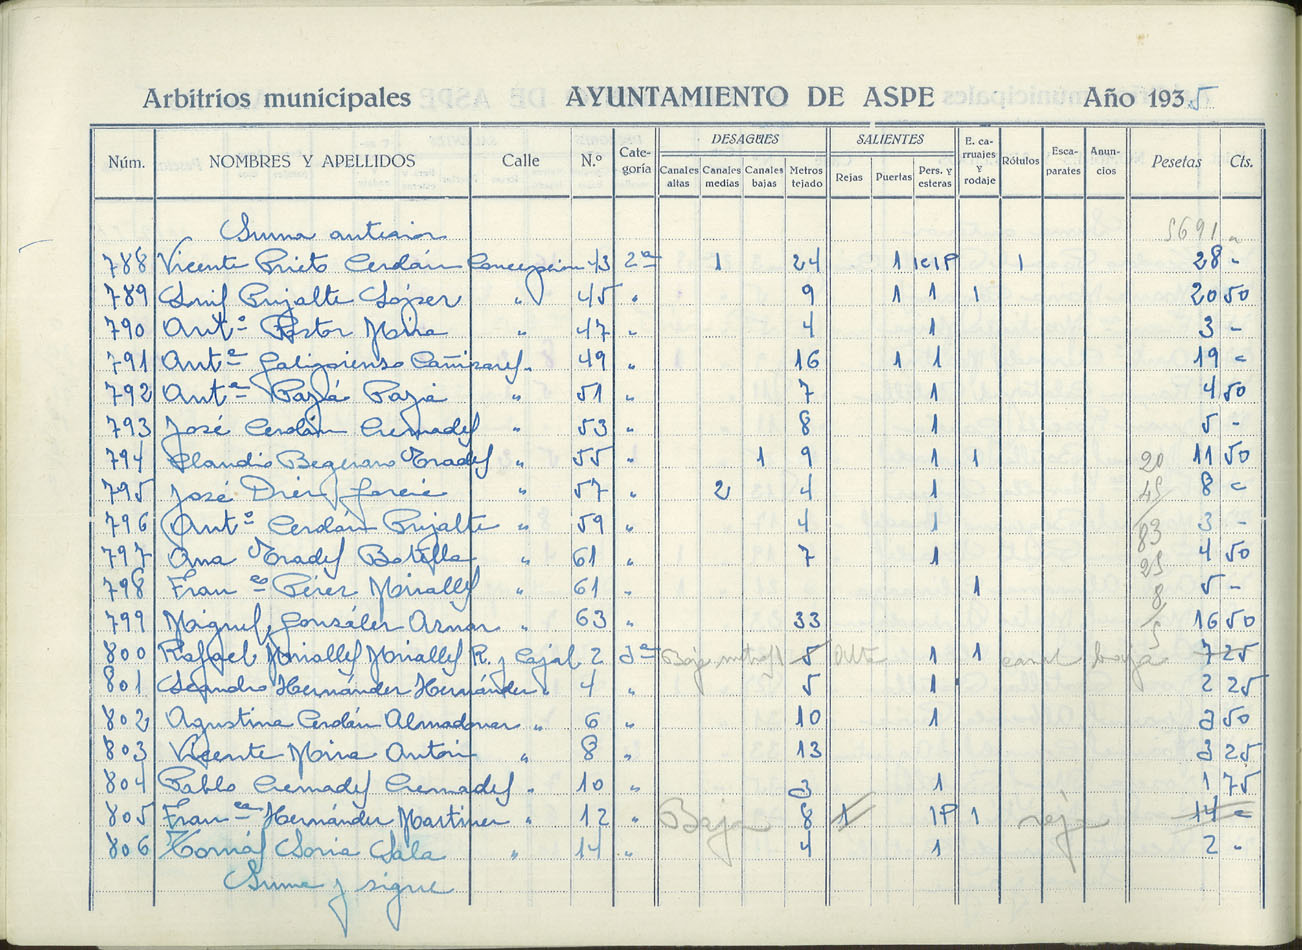 Arbitrios municipales AYUNTAMIENTO DE ASPE Año 1935
Núm. NOMBRES Y APELLIDOS Calle N.º Categoría DESAGÜES Canales altas Canales medias Canales bajas Metros tejado SALIENTES Rejas Puertas Pers. y esteras E. carruajes y rodaje Rótulos Escaparates Anuncios Pesetas Cts.
Suma anterior 5691 "
788 Vicente Prieto Cerdán Concepción 43 2ª 1 24 1 1c1P 1 28 -
789 Bujalte López " 45 " 9 1 1 1 20 50
790 Antº Pastor Mira " 47 " 4 1 3 -
791 Antª Galipienso Cañizares " 49 " 16 1 1 19 "
792 Antª Payá Payá " 51 " 7 1 4 50
793 José Cerdán Cremades " 53 " 8 1 5 -
794 Claudio Prades " 55 " 1 9 1 1 11 50
795 José Díez García " 57 " 2 4 1 8 "
796 Antº Cerdán Bujalte " 59 " 4 1 3 -
797 Ana Prades Botella " 61 " 7 1 4 50
798 Franco Pérez Miralles " 61 " 1 5 -
799 Miguel González Aznar " 63 " 33 16 50
800 Rafael Miralles Miralles R. y Cajal 2 3ª Baja 5 Alta 1 1 canal baja 7 25
801 Leandro Hernández Hernández " 4 " 5 1 2 25
802 Agustina Cerdán Almodovar " 6 " 10 1 3 50
803 Vicente Mira Antón " 8 " 13 3 25
804 Pablo Cremades Cremades " 10 " 3 1 1 75
805 Franca Hernández Martínez " 12 " Baja 8 1 1P 1 reja 14 "
806 Tomás Soria Sala " 14 " 4 1 2 "
Suma y sigue